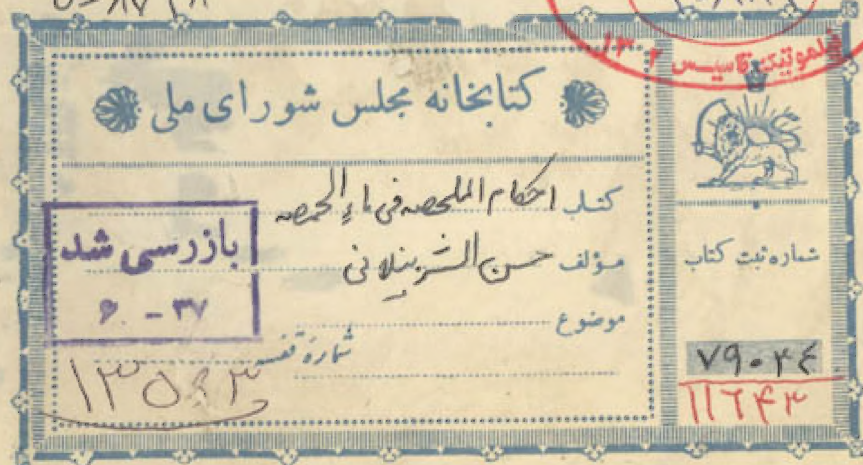 تاسیس ۱۳۰۲
کتابخانه مجلس شورای ملی
کتاب احکام الملخصه فی ماء الحمصه
مؤلف حسن الشرنبلانی
موضوع
شمارهٔ قفسه
۱۳۵۹۳
بازرسی شد
۶ - ۳۷
شماره ثبت کتاب
۷۹۰۲۴
۱۱۶۴۳